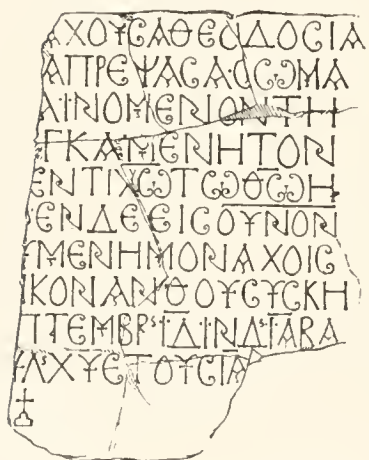 ΑΧΟΥϹΑΘΕΟΔΟϹΙΑ
ΑΠΡΕΨΑϹΑ·ΟϹΩΜΑ
ΑΙΝΟΜΕΝΟΝΤΗ
ΓΚΑΜΕΝΗΤΟΝ
ΕΝΤΙΧΩΤΩΘΩΗ
ΕΝΔΕΕΙϹΟΥΝΟΝ
ΥΜΕΝΗΜΟΝΑΧΟΙϹ
ΙΚΟΝΑΝΘΟΥϹΥϹΚΗ
ΠΤΕΜΒΡˢ·ΙΔ·ΙΝΔˢΙΑΒΑ
ΙΛˢΧΥΕΤΟΥϹΙΑ